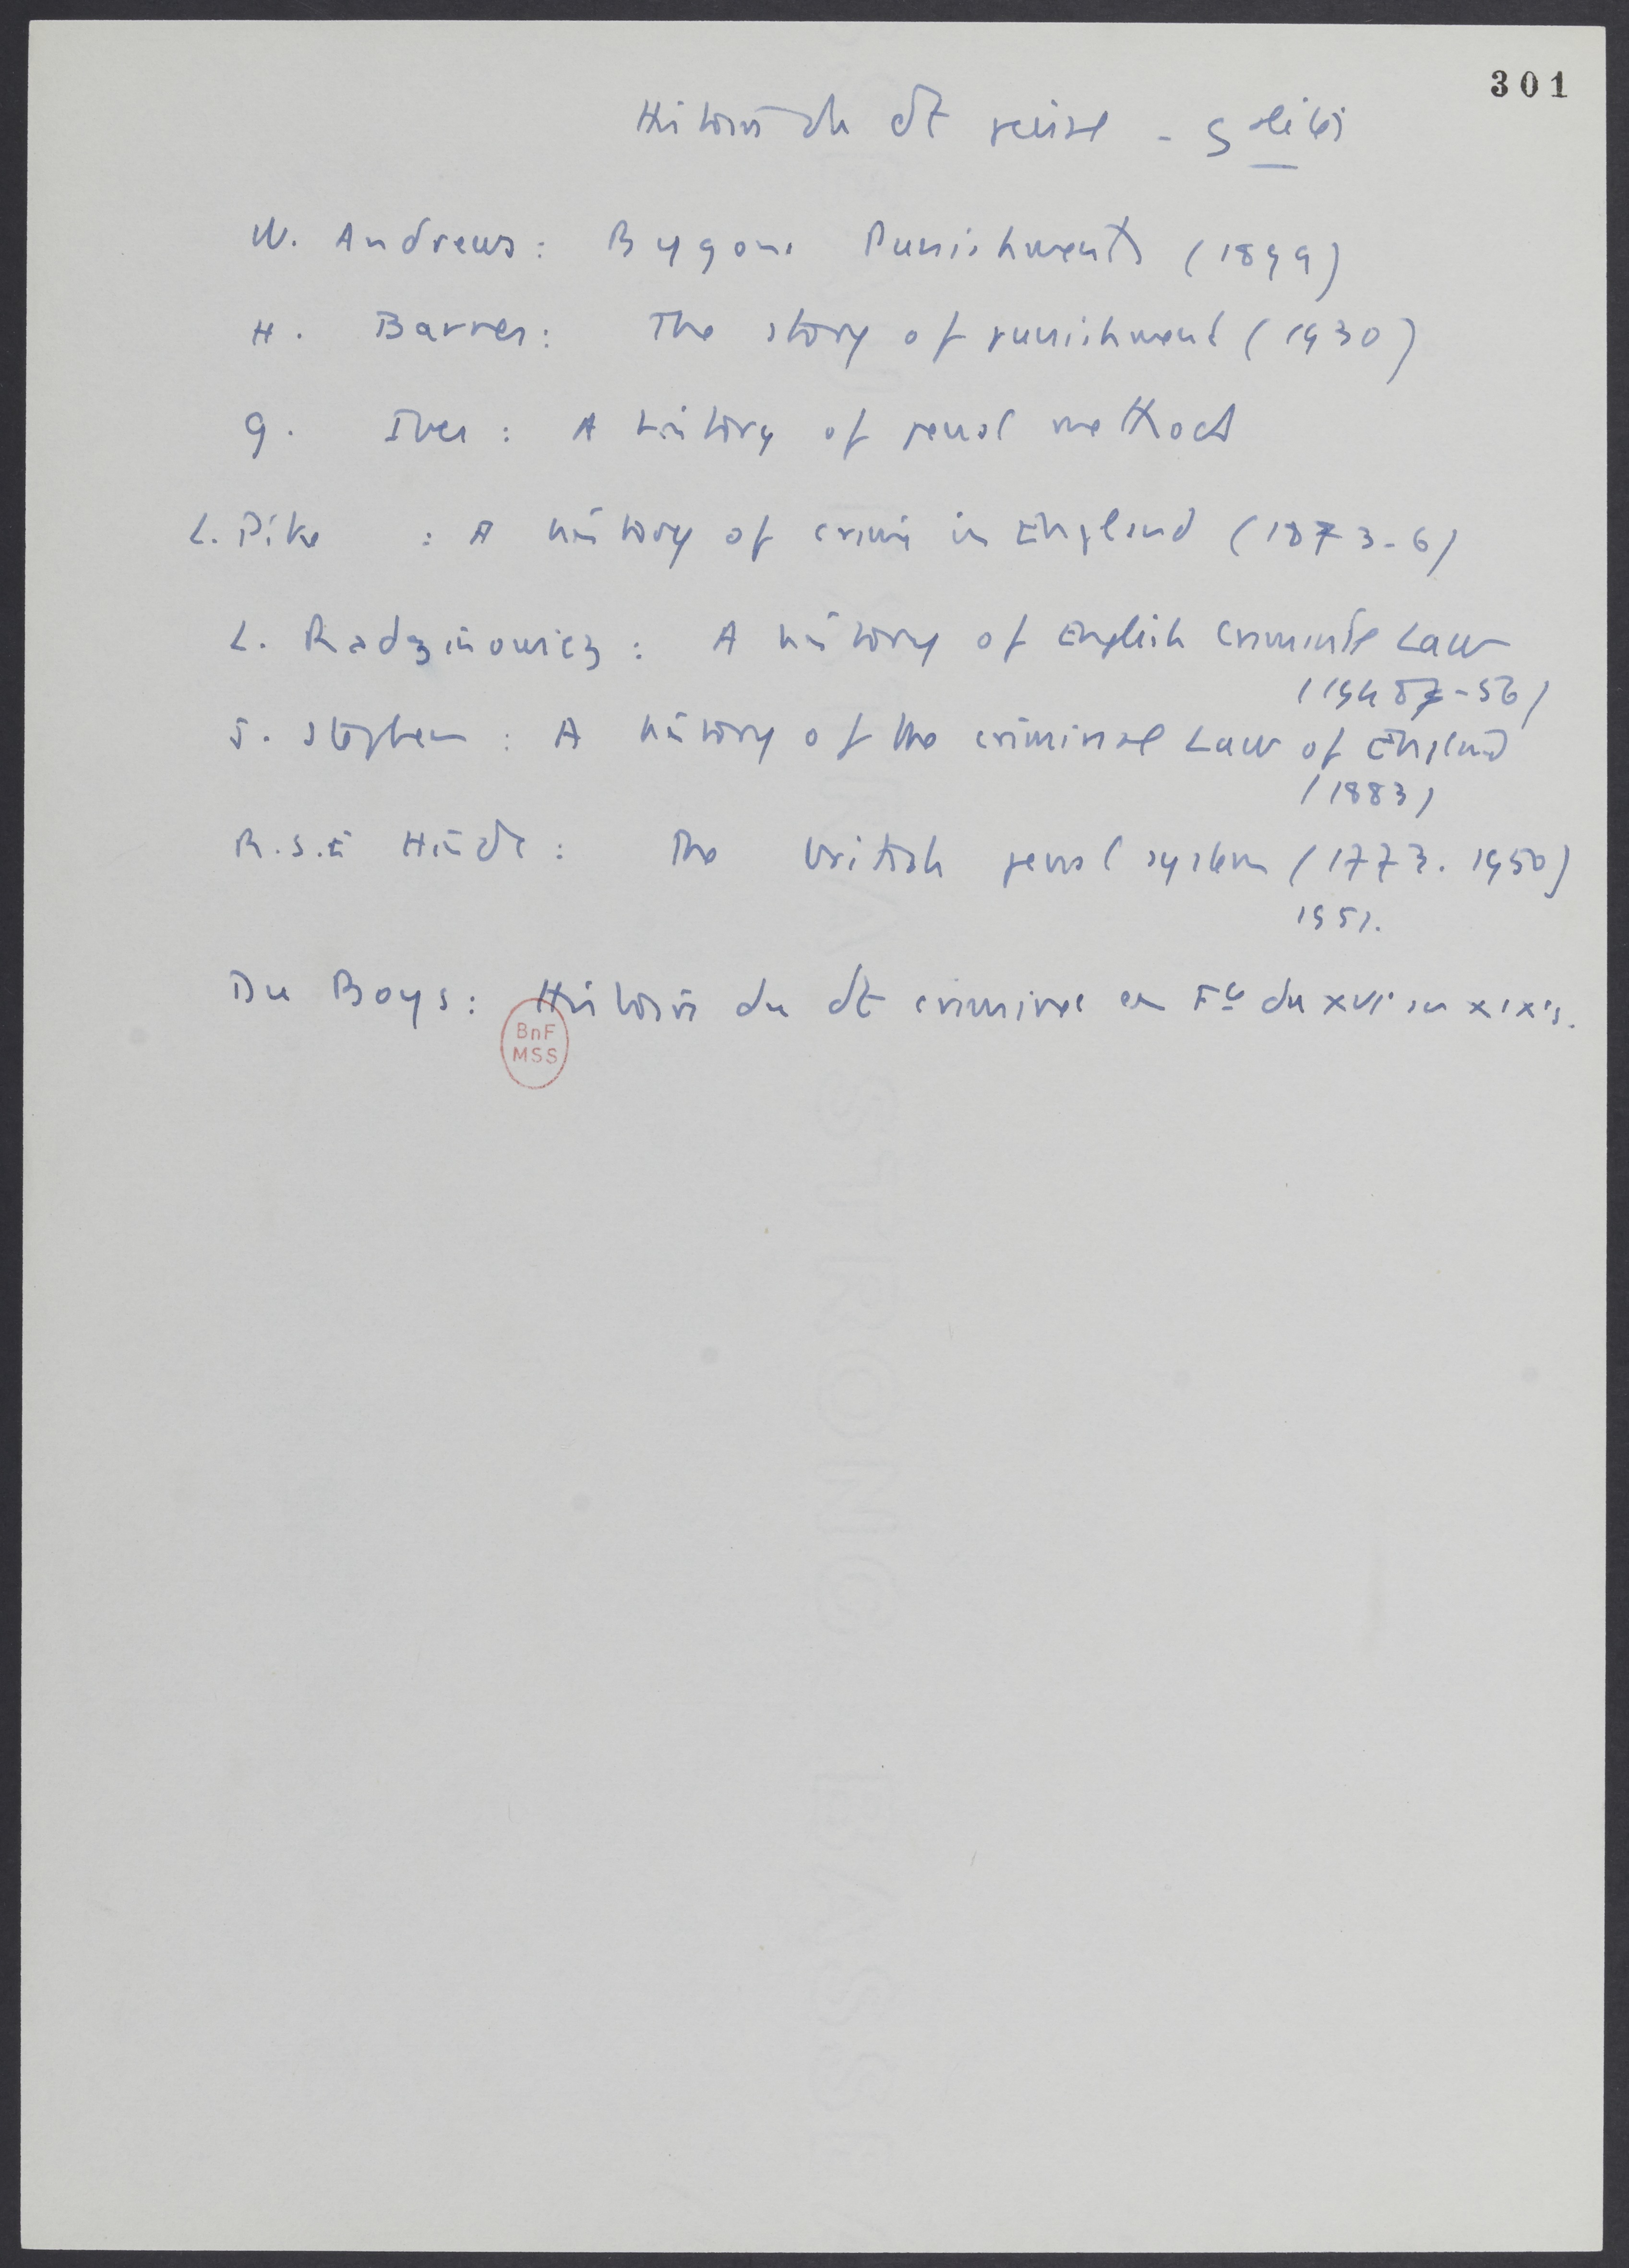 301
Histoire du dt pénal - Gélités
W. Andrews : Bygone Punishments (1899)
H. Barnes : The story of punishment (1930)
G. Ives : A history of penal methods
L. Pike : A history of crime in England (1873-6)
L. Radzinowicz : A history of English Criminal Law
(1948-56)
J. Stephen : A history of the criminal Law of England
(1883)
R.S.E Hinde : The british penal system (1773-1950)
1951.
Du Boys : Histoire du dt criminel en Fce du XVIe au XIXe s.
BnF
MSS